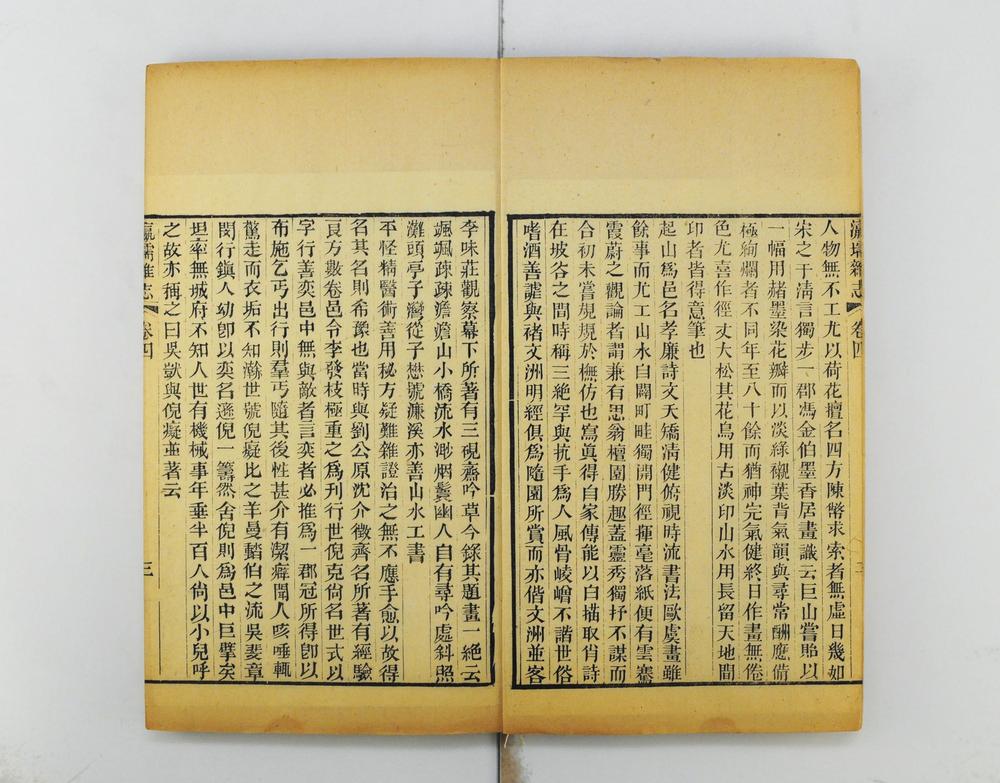 瀛壖雜志 卷四
人物無不工尤以荷花擅名四方陳幣求索者無虛日幾如
宋之于淸言獨步一郡馮金伯墨香居畫識云巨山嘗貽以
一幅用赭墨染花瓣而以淡綠襯葉背氣韻與尋常酬應備
極絢爛者不同年至八十餘而猶神完氣健終日作畫無倦
色尤喜作徑丈大松其花鳥用古淡印山水用長留天地間
印者皆得意筆也
起山爲邑名孝廉詩文天矯淸健俯視時流書法歐虞畫雖
餘事而尤工山水自闢町畦獨開門徑揮毫落紙便有雲騫
霞蔚之觀論者謂兼有思翁檀園勝趣蓋靈秀獨抒不謀而
合初未嘗規規於橅仿也寫眞得自家傳能以白描取肖詩
在坡谷之間時稱三絶罕與抗手爲人風骨崚嶒不諧世俗
嗜酒善謔與褚文洲明經俱爲隨園所賞而亦偕文洲並客
李味莊觀察幕下所著有三硯齋吟草今錄其題畫一絶云
颯颯疎疎澹澹山小橋流水渺烟鬟幽人自有尋吟處斜照
灘頭亭子灣從子懋號濂溪亦善山水工書
不怪精醫術善用秘方疑難雜證治之無不應手愈以故得
名其名則希豫也當時與劉公原沈介徵齊名所著有經驗
良方數卷邑令李發枝極重之爲刊行世倪克尙名世式以
字行善奕邑中無與敵者言奕者必推爲一郡冠所得卽以
布施乞丐出行則羣丐隨其後性甚介有潔癖聞人咳唾輒
驚走而衣垢不知澣世號倪癡比之羊曼䵬伯之流吳斐章
閔行鎭人幼卽以奕名遜倪一籌然舍倪則爲邑中巨擘矣
坦率無城府不知人世有機械事年垂半百人尙以小兒呼
之故亦稱之曰吳獃與倪癡並著云
瀛壖雜志 卷四 三